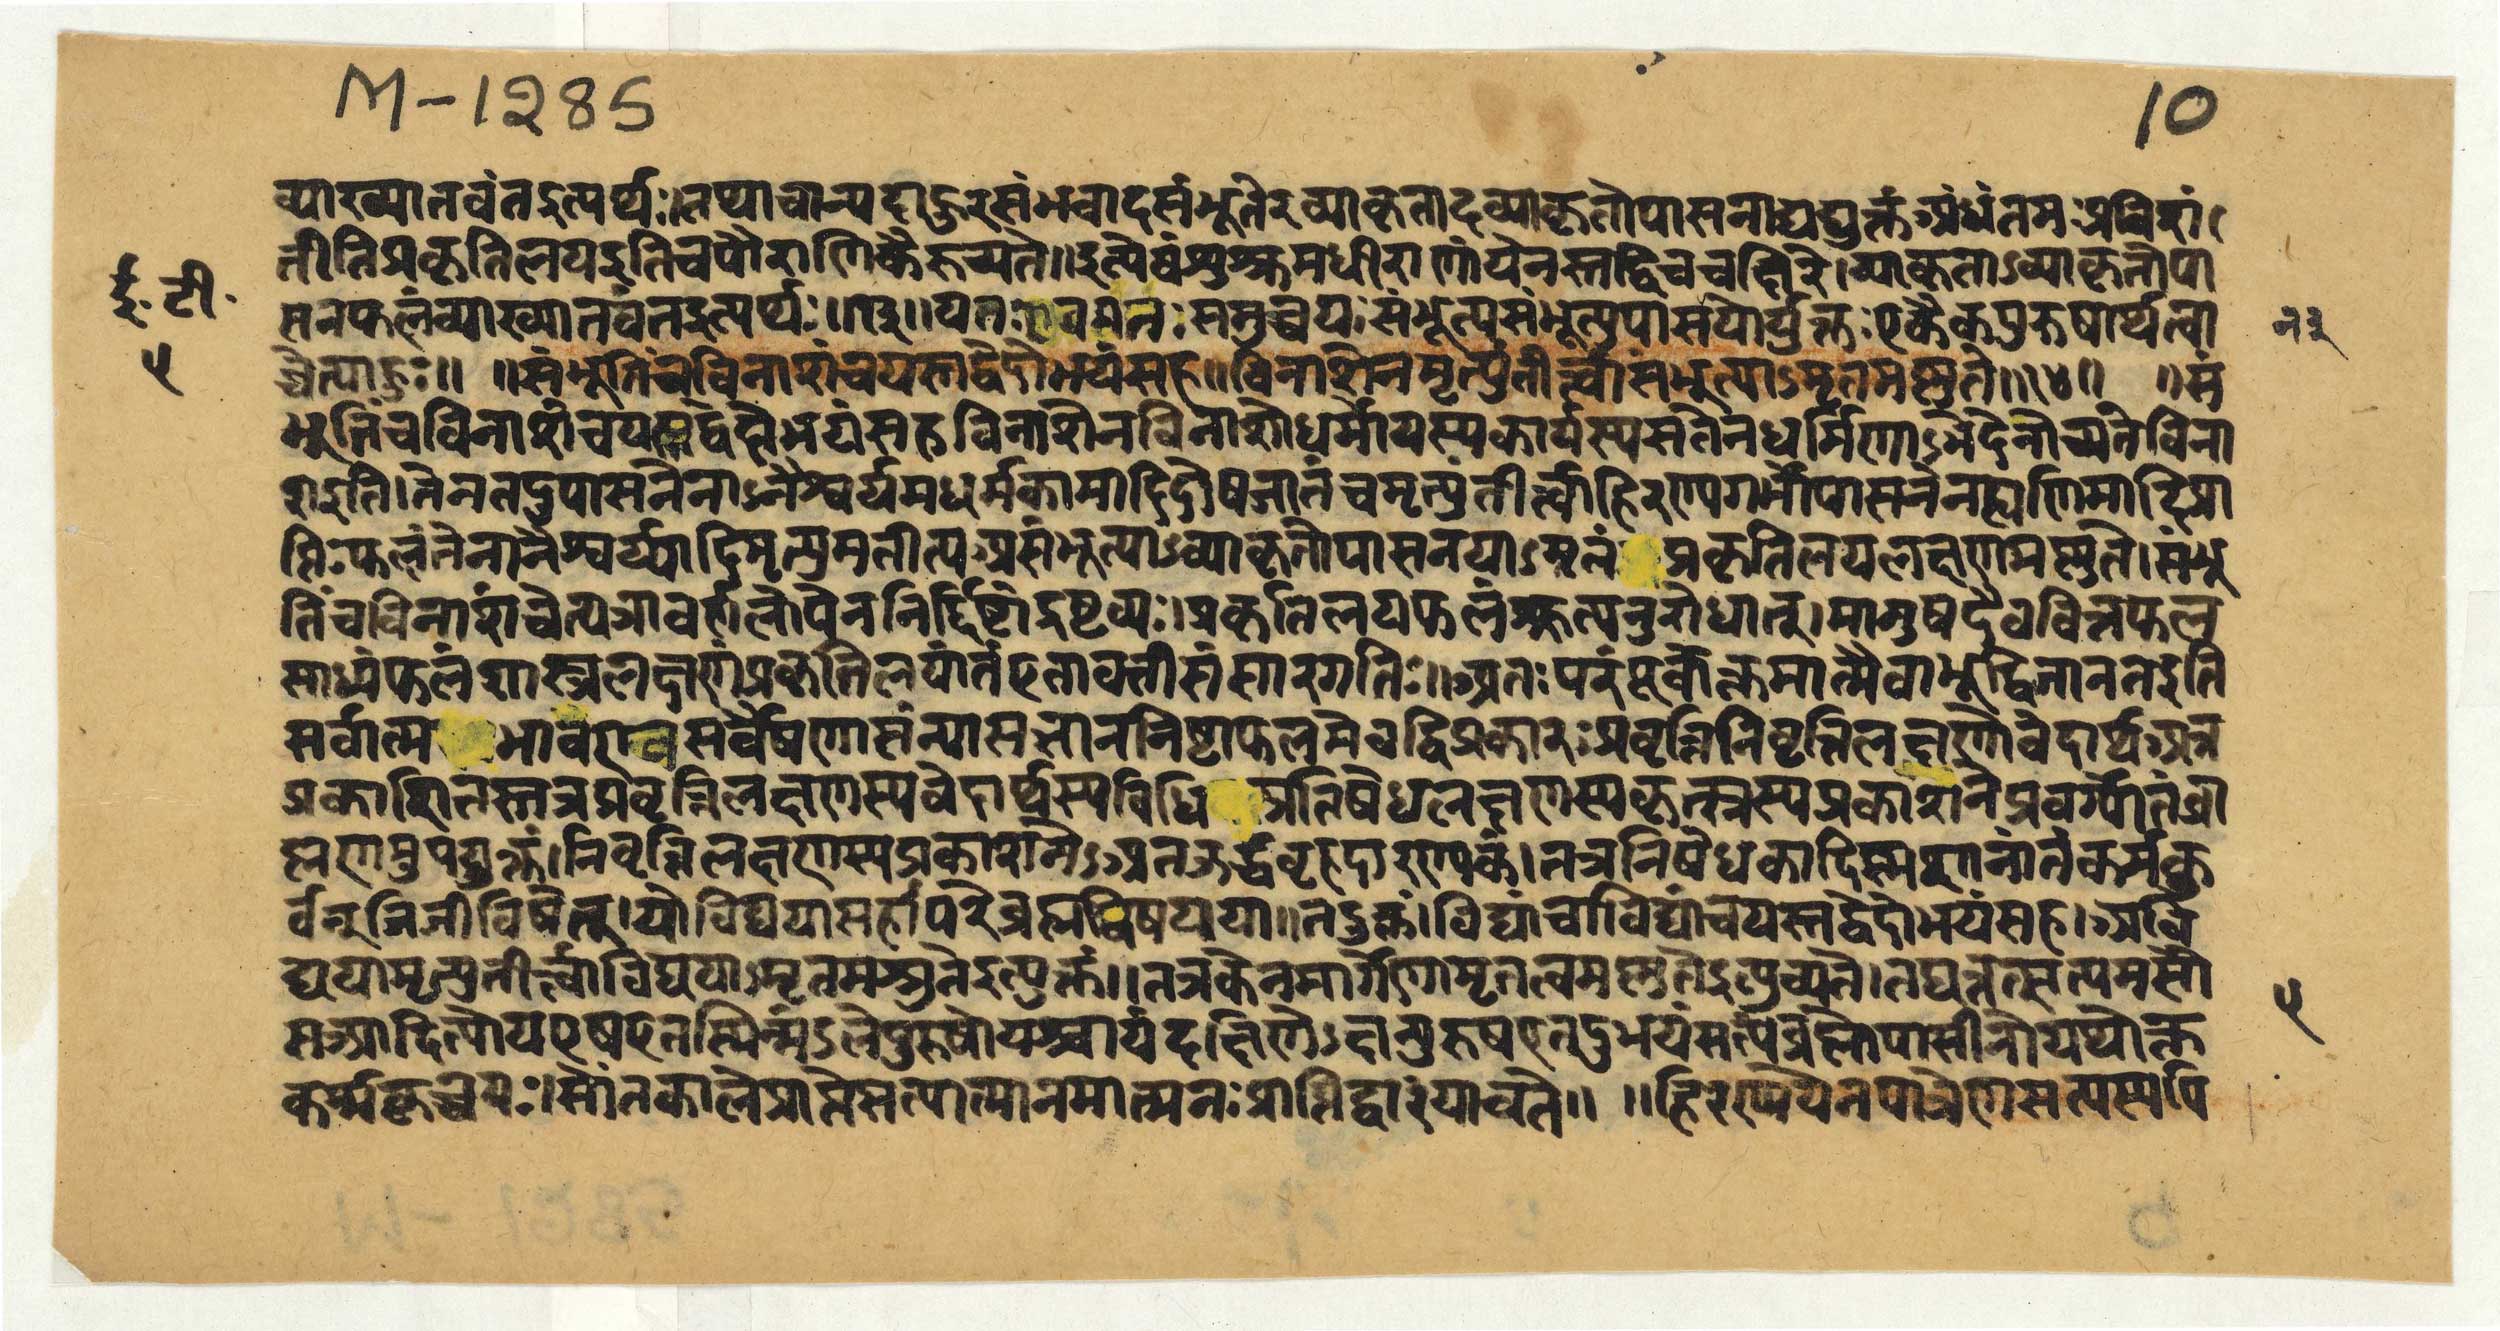 M-1285
10
व्याख्यातवंतइत्यर्थः।तथाचान्यदाहुरसंभवादसंभूतेरव्याकृतादव्याकृतोपासनाद्यदुक्तंअंधंतमःप्रविशं
तीतिप्रकृतिलयइतिचपौराणिकैरुच्यते॥इत्येवंशुश्रुमधीराणांयेनस्तद्विचचक्षिरे।व्याकृताऽव्याकृतोपा
ई.टी.
सनफलंव्याख्यातवंतइत्यर्थः॥१३॥यतएवमतःसमुच्चयःसंभूत्यसंभूत्युपासनयोर्युक्तःएकैकपुरुषार्थत्वा
नयो
५
च्चेत्याहुः॥ ॥संभूतिंचविनाशंचयस्तद्वेदोभयंसह॥विनाशेनमृत्युंतीर्त्वासंभूत्याऽमृतमश्नुते॥१४॥ ॥सं
भूतिंचविनाशंचयस्तद्वेदोभयंसहविनाशेनविनाशोधर्मोयस्यकार्यस्यसतेनधर्मिणाऽभेदेनोच्यतेविना
शइति।तेनतदुपासनेनाऽनैश्वर्यमधर्मकामादिदोषजातंचमृत्युंतीर्त्वाहिरण्यगर्भोपासनेनह्यणिमादिप्रा
प्तिःफलंतेनानैश्वर्य्यादिमृत्युमतीत्यअसंभूत्याऽव्याकृतोपासनयाऽमृतं प्रकृतिलयलक्षणमश्नुते।संभू
तिंचविनाशंचेत्यत्रावर्णलोपेननिर्द्दिष्टोद्रष्टव्यः।प्रकृतिलयफलश्रुत्यनुरोधात्।मानुषदैववित्तफल
साध्यंफलंशास्त्रलक्षणंप्रकृतिलयांतंएतावतीसंसारगतिः॥अतःपरंपूर्वोक्तमात्मैवाभूद्विजानतइति
सर्वात्म भावएवसर्वैषणासंन्यासज्ञाननिष्ठाफलमेवंद्विप्रकारःप्रवृत्तिनिवृत्तिलक्षणोवेदार्थअत्र
प्रकाशितस्तत्रप्रवृत्तिलक्षणस्यवेदार्थस्यविधि प्रतिषेधलक्षणस्यकृत्स्नस्यप्रकाशनेप्रवर्ग्यांतंब्रा
ह्मणमुपयुक्तं।निवृत्तिलक्षणस्यप्रकाशनेऽअतऊर्द्ध्वंबृहदारण्यकं।तत्रनिषेधकादिश्मशानांतंकर्मकु
र्वन्जिजीविषेत्।योविद्ययासहापरेब्रह्मविषयया॥तदुक्तं।विद्यांचाविद्यांचयस्तद्वेदोभयंसह।अवि
द्ययामृत्युंतीर्त्वाविद्ययाऽमृतमश्नुतेइत्युक्तं॥तत्रकेनमार्गेणामृतत्वमश्नुतेइत्युच्यते।तद्यत्तत्सत्यमसौ
५
सआदित्योयएषएतस्मिन्मंडलेपुरुषोयश्चायंदक्षिणेऽक्षन्पुरुषएतदुभयंसत्यंब्रह्मोपासीनोयथोक्त
कर्म्मकृच्चयः।सोंतकालेप्राप्तेसत्यात्मानमात्मनःप्राप्तिद्वारंयाचते॥ ॥हिरण्मयेनपात्रेणसत्यस्यापि